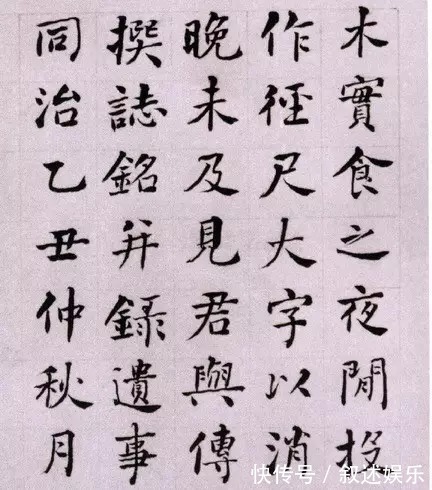 木實食之夜間投
作徑尺大字以消
晚未及見君與傳
撰誌銘并錄遺事
同治乙丑仲秋月
快传号 / 叙述娱乐